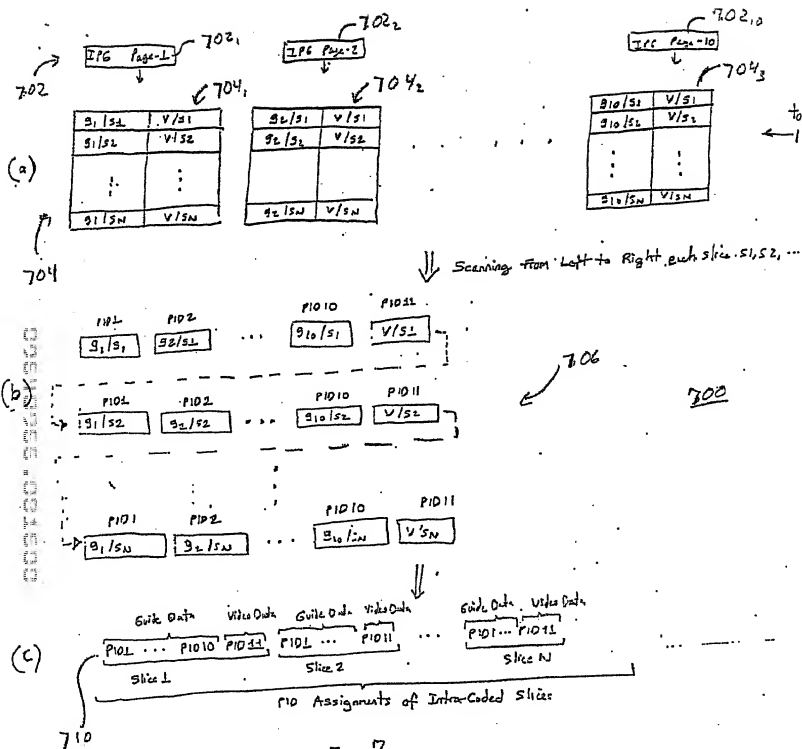 702₁
702₂
702₁₀
702
IPG Page-1
IPG Page-2
IPG Page-10
704₁
704₂
704₃
(a)
g1/s1 V/s1
g1/s2 V/s2
g1/sN V/sN
g2/s1 V/s1
g2/s2 V/s2
g2/sN V/sN
g10/s1 V/s1
g10/s2 V/s2
g10/sN V/sN
to
1
704
Scanning From Left to Right each slice s1, s2, ...
PID1 PID2 ... PID10 PID11
g1/s1 g2/s1 ... g10/s1 V/s1
(b)
706
700
PID1 PID2 PID10 PID11
g1/s2 g2/s2 ... g10/s2 V/s2
PID1 PID2 PID10 PID11
g1/sN g2/sN ... g10/sN V/sN
Guide Data Video Data Guide Data Video Data Guide Data Video Data
(c)
PID1 ... PID10 PID11 PID1 ... PID11 ... PID1 ... PID11
Slice 1 Slice 2 Slice N
PID Assignments of Intra-Coded Slices
710
7